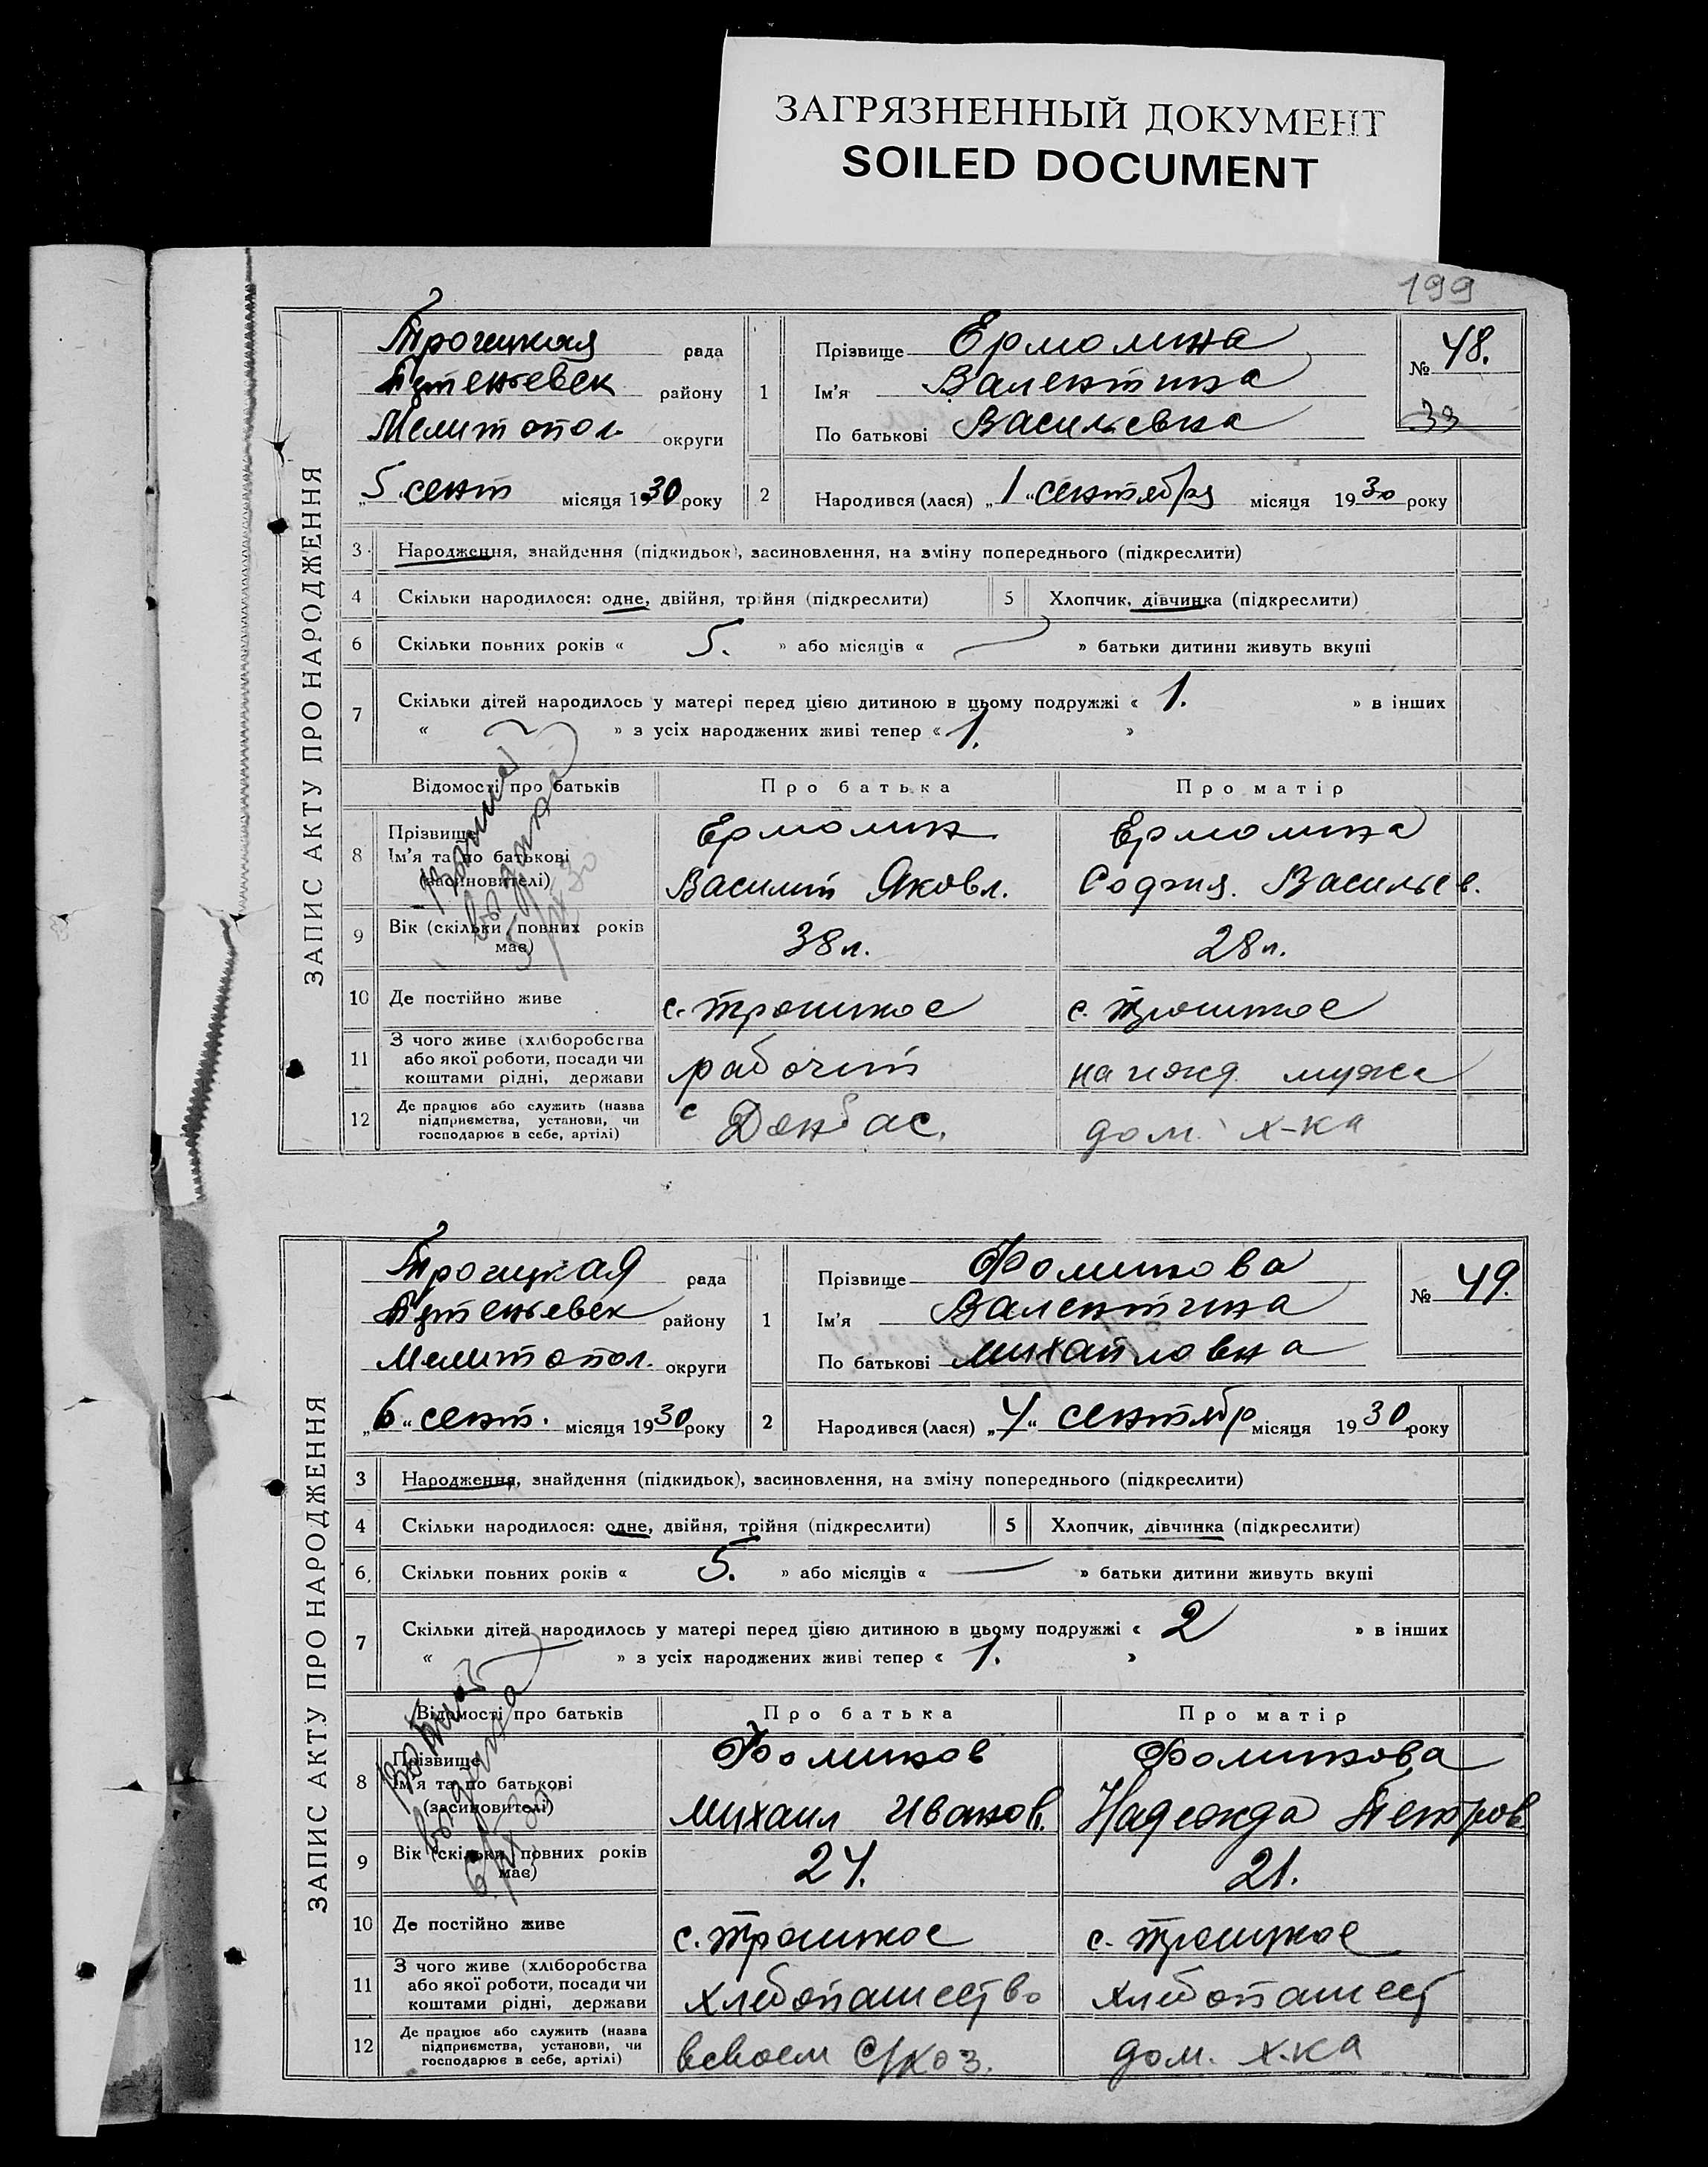 ЗАГРЯЗНЕННЫЙ ДОКУМЕНТ
SOILED DOCUMENT
199
ЗАПИС АКТУ ПРО НАРОДЖЕННЯ
Троицкая рада
району
Мелитопол. округи
„5“ сент місяця 1930 року
1 Прізвище Ермолина
Ім'я Валентина
По батькові Васильевна
№ 48.
39
2 Народився (лася) „1“ сентября місяця 1930 року
3 Народження, знайдення (підкидьок), засиновлення, на зміну попереднього (підкреслити)
4 Скільки народилося: одне, двійня, трійня (підкреслити) 5 Хлопчик, дівчинка (підкреслити)
6 Скільки повних років « 5. » або місяців « — » батьки дитини живуть вкупі
7 Скільки дітей народилось у матері перед цією дитиною в цьому подружжі « 1. » в інших
« » з усіх народжених живі тепер « 1. »
Відомості про батьків Про батька Про матір
8 Прізвище Ермолин Ермолина
Ім'я та по батькові
(засиновителі) Василий Яковл. София. Васильев.
9 Вік (скільки повних років має) 38 л. 28 л.
10 Де постійно живе с. Троицкое с. Троицкое
11 З чого живе (хліборобства
або якої роботи, посади чи рабочий на ижд. мужа
коштами рідні, держави
12 Де працює або служить (назва
підприємства, установи, чи Донбас. дом. х-ка
господарює в себе, артілі)
выписка
выдана
5/IX 30
ЗАПИС АКТУ ПРО НАРОДЖЕННЯ
Троицкая рада
району
Мелитопол. округи
„6“ сент. місяця 1930 року
1 Прізвище Фоминова
Ім'я Валентина
По батькові Михайловна
№ 49.
2 Народився (лася) „4“ сентябр місяця 1930 року
3 Народження, знайдення (підкидьок), засиновлення, на зміну попереднього (підкреслити)
4 Скільки народилося: одне, двійня, трійня (підкреслити) 5 Хлопчик, дівчинка (підкреслити)
6 Скільки повних років « 5. » або місяців « — » батьки дитини живуть вкупі
7 Скільки дітей народилось у матері перед цією дитиною в цьому подружжі « 2 » в інших
« » з усіх народжених живі тепер « 1. »
Відомості про батьків Про батька Про матір
8 Прізвище Фоминов Фоминова
Ім'я та по батькові
(засиновителі) Михаил Иванов. Надежда Петров
9 Вік (скільки повних років має) 24. 21.
10 Де постійно живе с. Троицкое с. Троицкое
11 З чого живе (хліборобства
або якої роботи, посади чи хлебопашество хлебопашест
коштами рідні, держави
12 Де працює або служить (назва
підприємства, установи, чи в своем с/хоз. дом. х-ка
господарює в себе, артілі)
выдана
6/IX 30